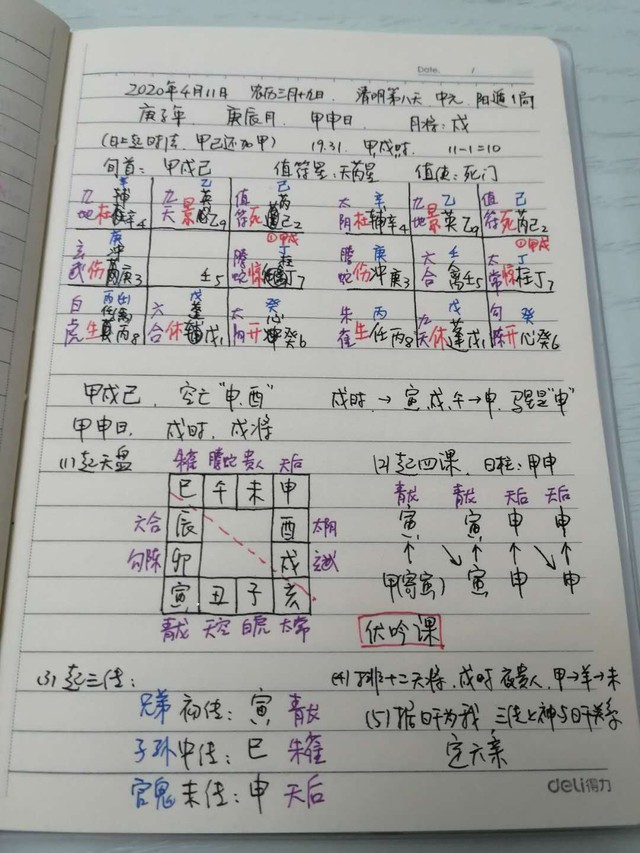 Date. /
2020年4月11日 农历三月十九日. 清明第八天 中元 阳遁1局
庚子年 庚辰月 甲申日. 月将: 戌
(日上起时法, 甲己还加甲) 19.31. 甲戌时. 11-1=10
旬首: 甲戌己 值符星: 天芮星 值使: 死门
辛 乙 己 己
九 辅 九 英 值 芮 太 辛 九 乙 值 己
地杜 辛4 天景 乙9 符死 己2 阴杜辅辛4 地景英乙9 符死芮己2
①甲戌 ①甲戌
玄 庚冲 腾 丁柱 腾 庚 六 壬 太 丁
武伤 庚3 壬5 蛇惊 丁7 蛇伤冲庚3 合禽壬5 常惊柱丁7
白 丙(壬)任(禽) 六 戊蓬 太 癸心 朱 丙 九 戊 勾 癸
虎生 丙8 合休 戊1 阴开 癸6 雀生任丙8 天休蓬戊1 陈开心癸6
甲戌己. 空亡"申.酉" 戌时 → 寅.戌.午→申. 马星是"申"
甲申日. 戌时, 戌将
(1)起天盘 朱雀 腾蛇 贵人 天后 (2)起四课. 日柱: 甲申
巳 午 未 申 青龙 青龙 天后 天后
六合 辰 酉 太阴 寅 寅 申 申
勾陈 卯 戌 玄武 ↑ ↘ ↑ ↑ ↘ ↑
寅 丑 子 亥 甲(寄寅) 寅 申 申
青龙 天空 白虎 太常 伏吟课
(3)起三传: (4)排十二天将. 戌时 夜贵人. 甲→羊→未
兄弟 初传: 寅 青龙 (5)据日干为我 三传之神与日干关系
子孙 中传: 巳 朱雀 定六亲
官鬼 末传: 申 天后
deli得力